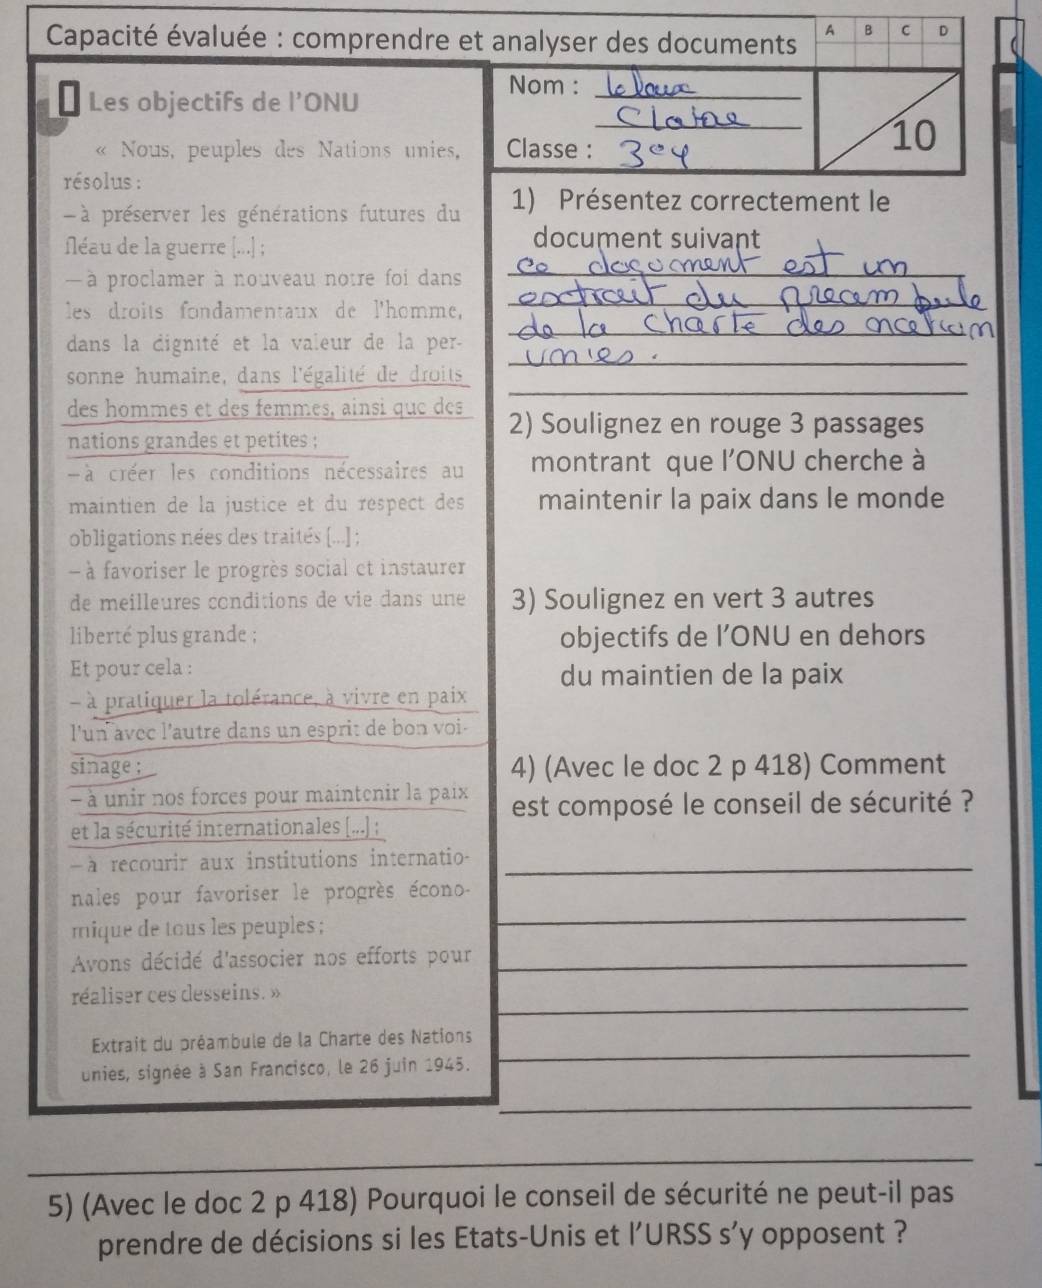 Capacité évaluée : comprendre et analyser des documents
A B C D
Les objectifs de l'ONU
« Nous, peuples des Nations unies,
résolus :
– à préserver les générations futures du
fléau de la guerre [...] ;
– à proclamer à nouveau notre foi dans
les droits fondamentaux de l'homme,
dans la dignité et la valeur de la per-
sonne humaine, dans l'égalité de droits
des hommes et des femmes, ainsi que des
nations grandes et petites ;
– à créer les conditions nécessaires au
maintien de la justice et du respect des
obligations nées des traités [...] ;
– à favoriser le progrès social et instaurer
de meilleures conditions de vie dans une
liberté plus grande ;
Et pour cela :
– à pratiquer la tolérance, à vivre en paix
l'un avec l'autre dans un esprit de bon voi-
sinage ;
– à unir nos forces pour maintenir la paix
et la sécurité internationales [...] ;
– à recourir aux institutions internatio-
nales pour favoriser le progrès écono-
mique de tous les peuples ;
Avons décidé d'associer nos efforts pour
réaliser ces desseins. »
Extrait du préambule de la Charte des Nations
unies, signée à San Francisco, le 26 juin 1945.
Nom :
Classe : 3e4
10
1) Présentez correctement le
document suivant
ce docoment est un
extrait du préambule
de la charte des nation
unies.
2) Soulignez en rouge 3 passages
montrant que l'ONU cherche à
maintenir la paix dans le monde
3) Soulignez en vert 3 autres
objectifs de l'ONU en dehors
du maintien de la paix
4) (Avec le doc 2 p 418) Comment
est composé le conseil de sécurité ?
5) (Avec le doc 2 p 418) Pourquoi le conseil de sécurité ne peut-il pas
prendre de décisions si les Etats-Unis et l'URSS s'y opposent ?